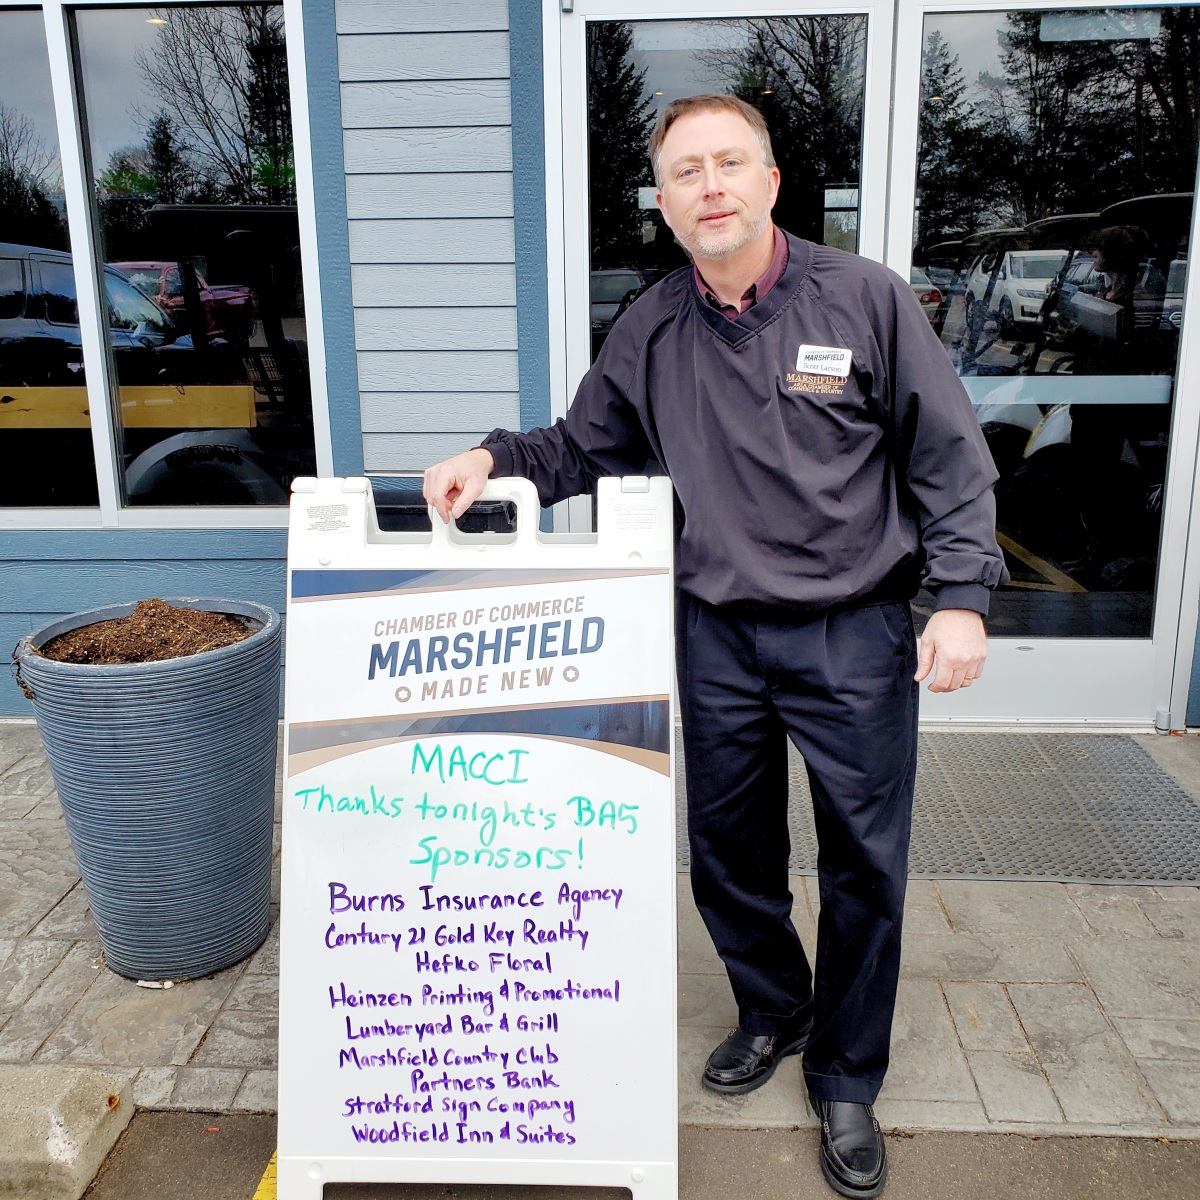 CHAMBER OF COMMERCE
MARSHFIELD
Scott Larson
MARSHFIELD
AREA CHAMBER OF
COMMERCE & INDUSTRY
CHAMBER OF COMMERCE
MARSHFIELD
MADE NEW
MACCI
Thanks tonight's BA5
Sponsors!
Burns Insurance Agency
Century 21 Gold Key Realty
Hefko Floral
Heinzen Printing & Promotional
Lumberyard Bar & Grill
Marshfield Country Club
Partners Bank
Stratford Sign Company
Woodfield Inn & Suites